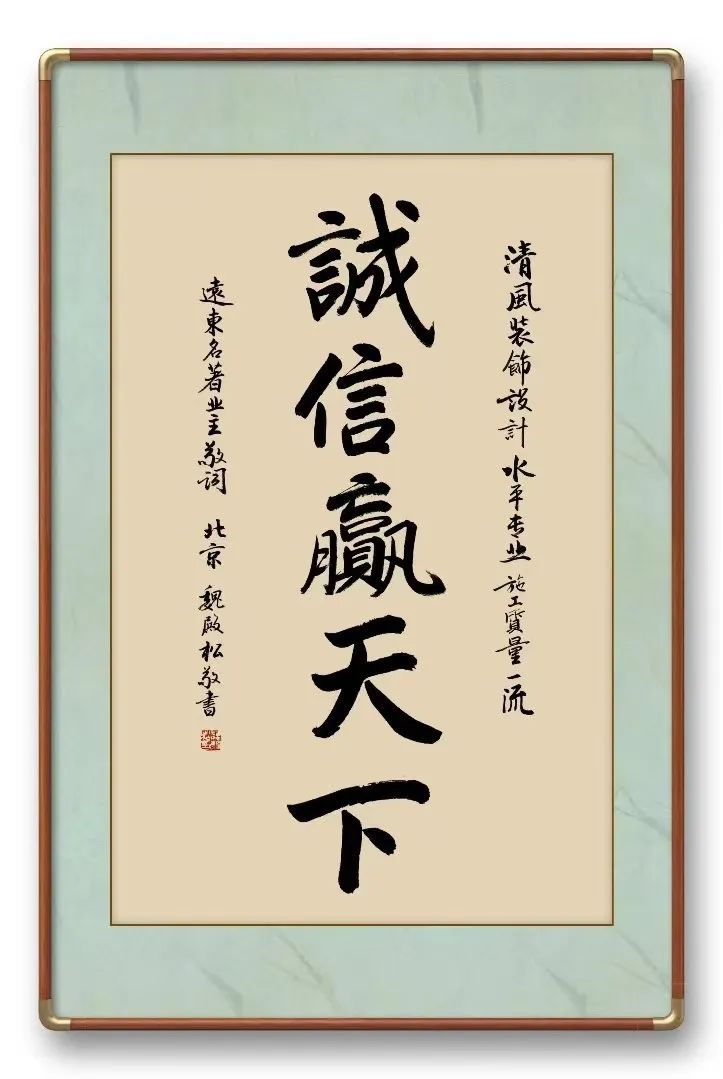 清風装飾設計 水平专业 施工質量一流
誠信贏天下
遠東名著业主敬词 北京 魏殿松敬書